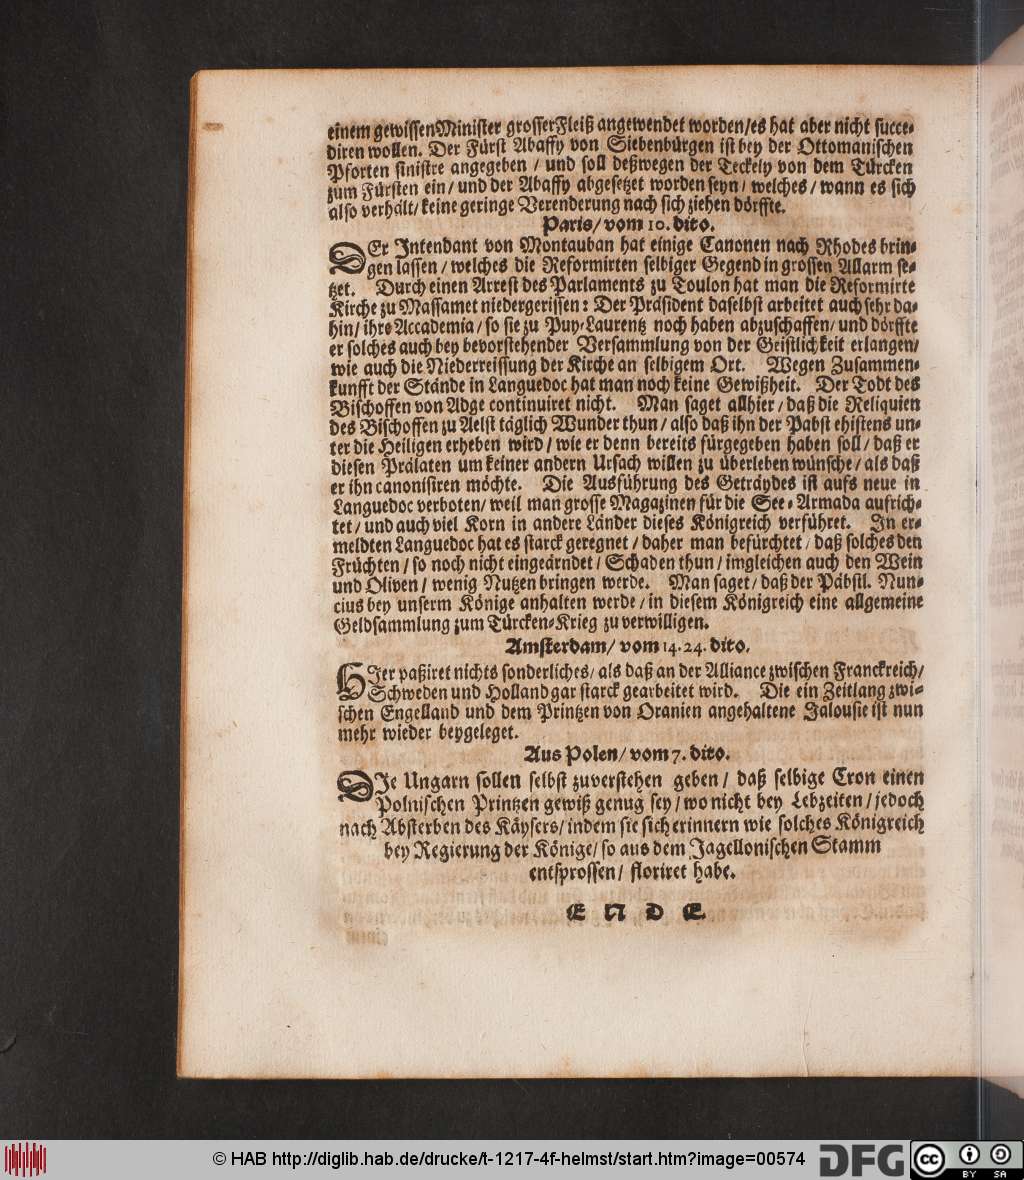 einem gewissen Minister grosser Fleiß angewendet worden/es hat aber nicht succe-
diren wollen. Der Fürst Abaffy von Siebenbürgen ist bey der Ottomanischen
Pforten sinistre angegeben / und soll deßwegen der Teckely von dem Türcken
zum Fürsten ein / und der Abaffy abgesetzet worden seyn / welches / wann es sich
also verhält / keine geringe Verenderung nach sich ziehen dörffte.
Paris / vom 10. dito.
DEr Intendant von Montauban hat einige Canonen nach Rhodes brin-
gen lassen / welches die Reformirten selbiger Gegend in grossen Allarm se-
tzet. Durch einen Arrest des Parlaments zu Toulon hat man die Reformirte
Kirche zu Massamet niedergerissen: Der Präsident daselbst arbeitet auch sehr da-
hin / ihre Accademia / so sie zu Puy-Laurentz noch haben abzuschaffen / und dörffte
er solches auch bey bevorstehender Versammlung von der Geistlichkeit erlangen/
wie auch die Niederreissung der Kirche an selbigem Ort. Wegen Zusammen-
kunfft der Stände in Languedoc hat man noch keine Gewißheit. Der Todt des
Bischoffen von Adge continuiret nicht. Man saget allhier / daß die Reliquien
des Bischoffen zu Aelst täglich Wunder thun / also daß ihn der Pabst ehistens un-
ter die Heiligen erheben wird / wie er denn bereits fürgegeben haben soll / daß er
diesen Prälaten um keiner andern Ursach willen zu überleben wünsche / als daß
er ihn canonisiren möchte. Die Ausführung des Geträydes ist aufs neue in
Languedoc verboten / weil man grosse Magazinen für die See-Armada aufrich-
tet / und auch viel Korn in andere Länder dieses Königreich verführet. In er-
meldten Languedoc hat es starck geregnet / daher man befürchtet / daß solches den
Früchten / so noch nicht eingeärndet / Schaden thun / imgleichen auch den Wein
und Oliven / wenig Nutzen bringen werde. Man saget / daß der Päbstl. Nun-
cius bey unserm Könige anhalten werde / in diesem Königreich eine allgemeine
Geldsammlung zum Türcken-Krieg zu verwilligen.
Amsterdam / vom 14. 24. dito.
HIer paßiret nichts sonderliches / als daß an der Alliance zwischen Franckreich/
Schweden und Holland gar starck gearbeitet wird. Die ein Zeitlang zwi-
schen Engelland und dem Printzen von Oranien angehaltene Jalousie ist nun
mehr wieder beygeleget.
Aus Polen / vom 7. dito.
DIe Ungarn sollen selbst zuverstehen geben / daß selbige Cron einen
Polnischen Printzen gewiß genug sey / wo nicht bey Lebzeiten / jedoch
nach Absterben des Käysers / indem sie sich erinnern wie solches Königreich
bey Regierung der Könige / so aus dem Jagellonischen Stamm
entsprossen / floriret habe.
E N D E.
© HAB http://diglib.hab.de/drucke/t-1217-4f-helmst/start.htm?image=00574
DFG
cc BY SA